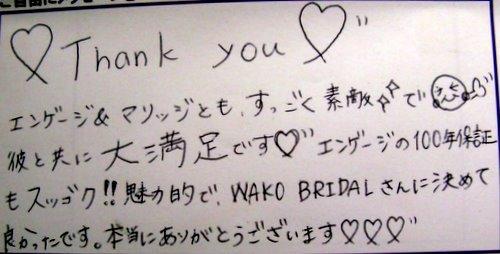 ♡ Thank you ♡"
エンゲージ&マリッジとも、すっごく素敵で
彼と共に大満足です♡"エンゲージの100年保証
もスッゴク!!魅力的で、WAKO BRIDALさんに決めて
良かったです。本当にありがとうございます♡♡♡"